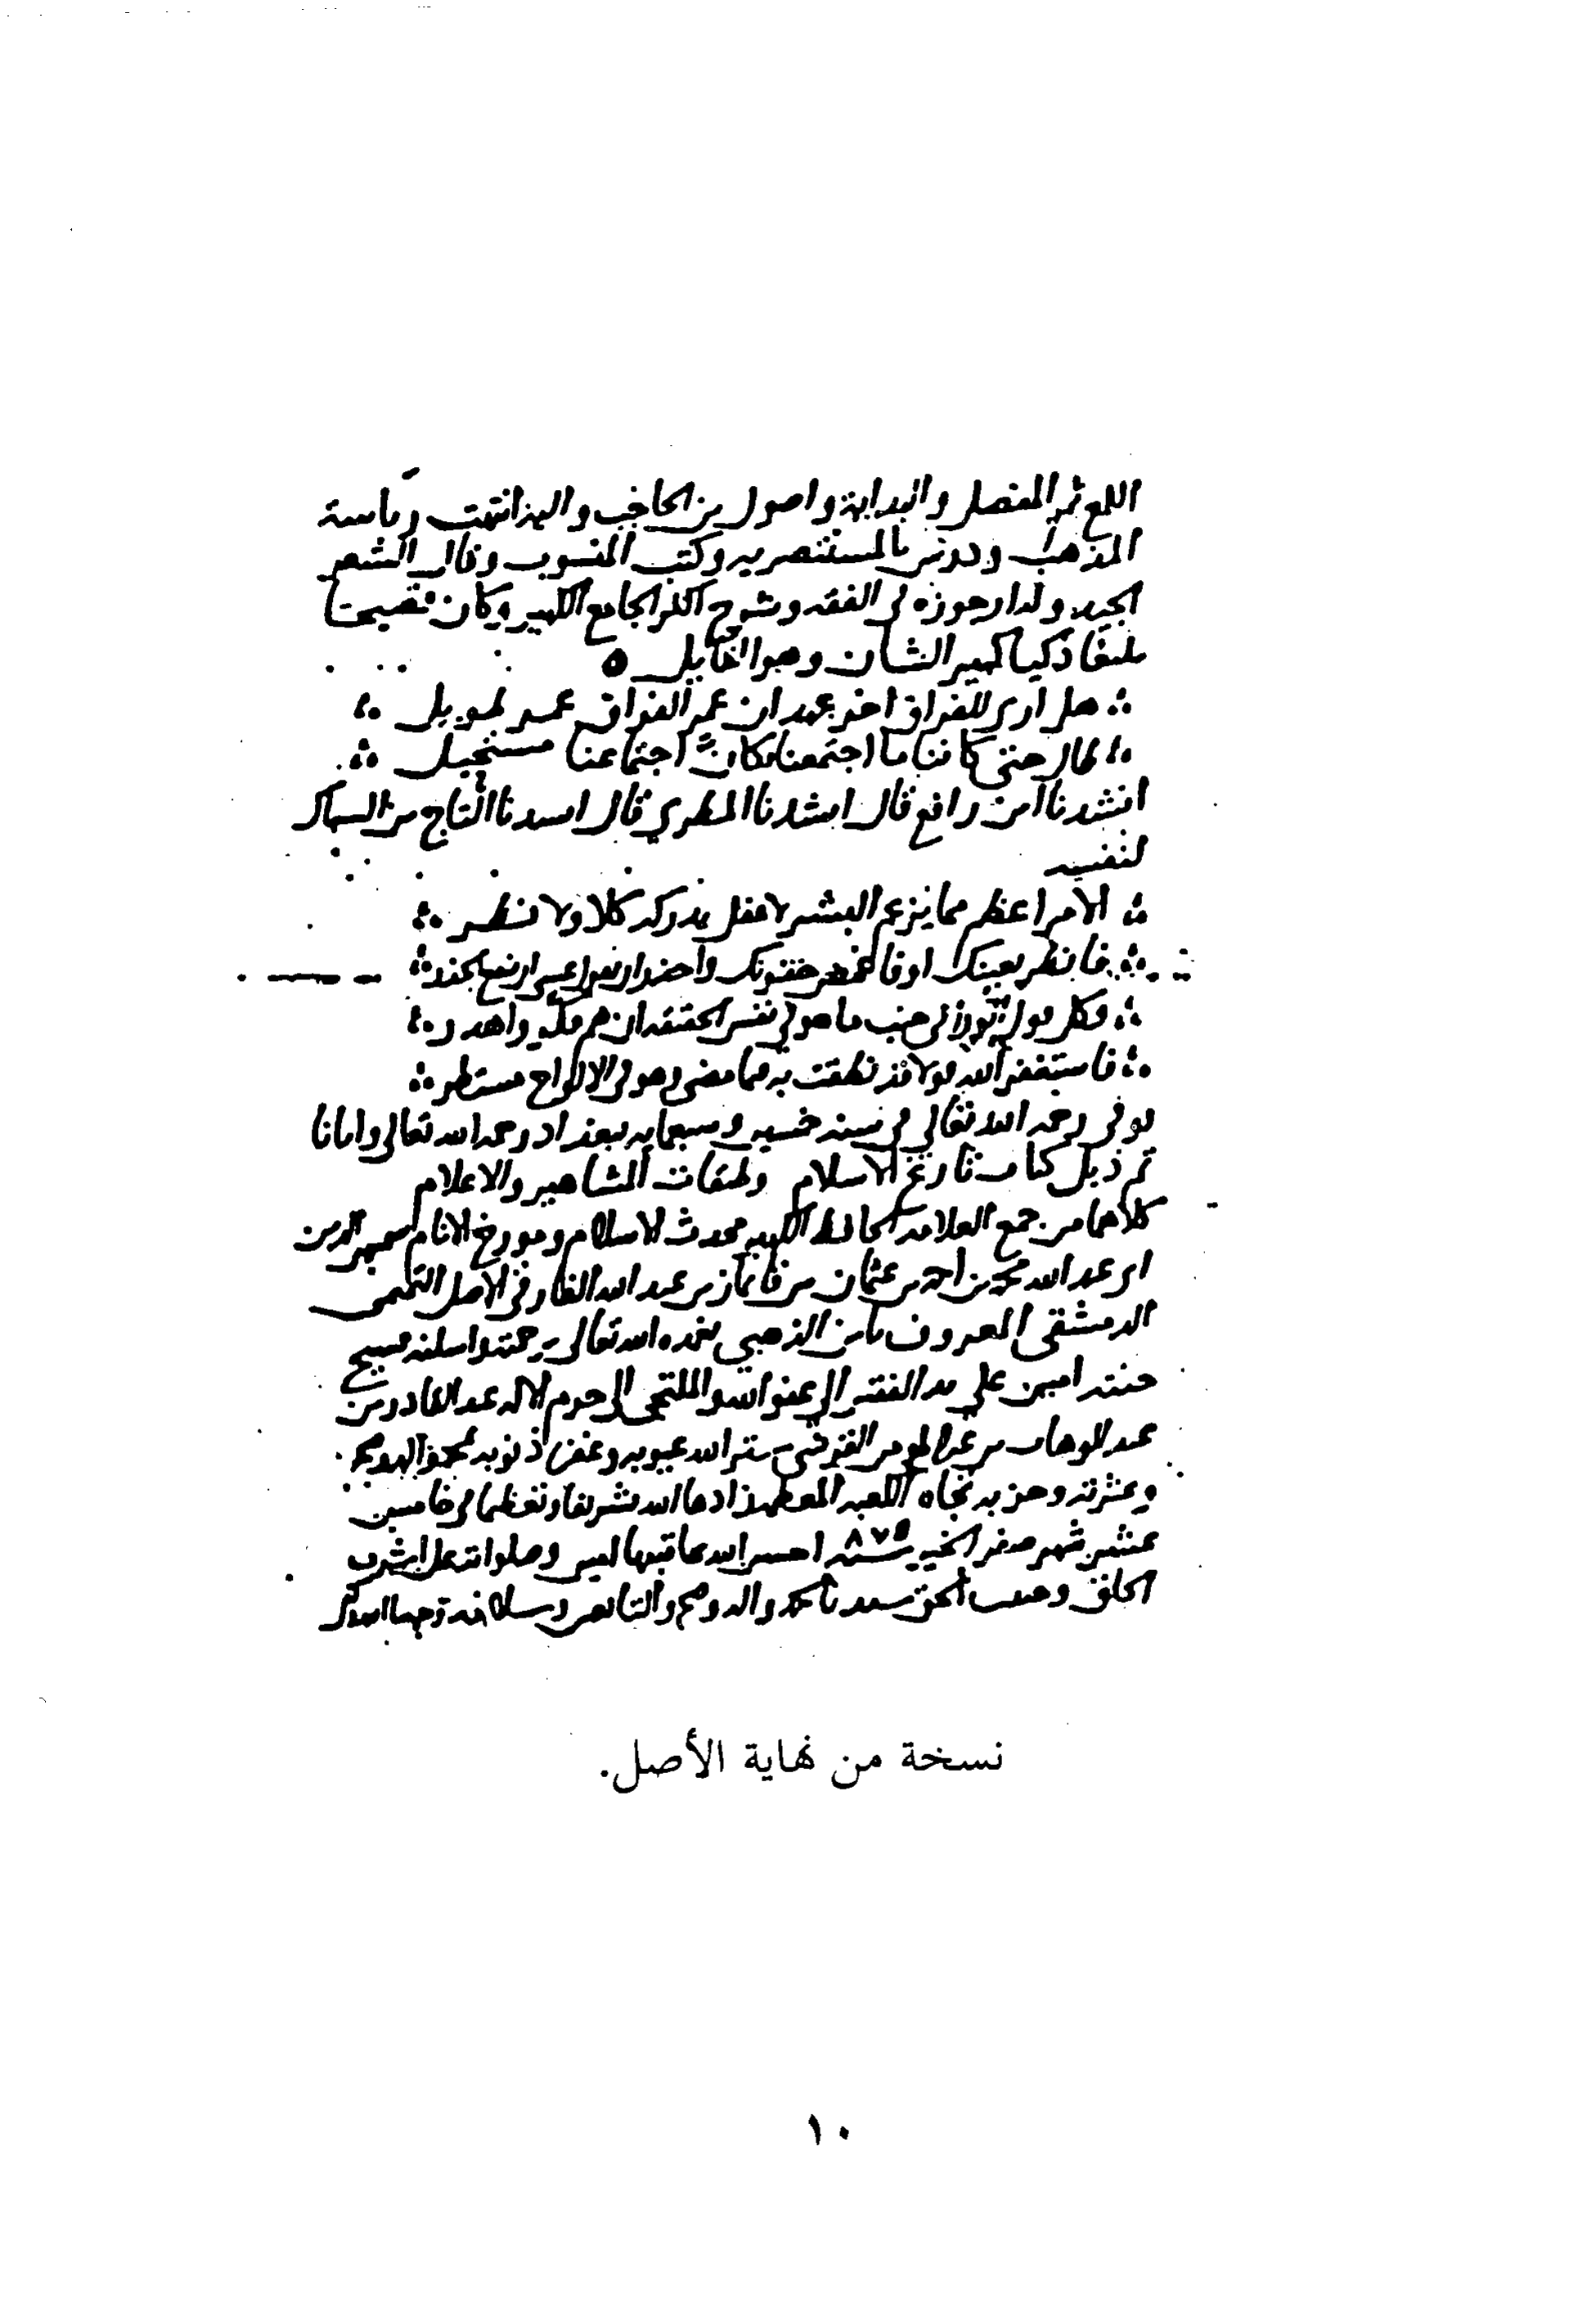 اللمع ثم المفصل والبداية واصول بن الحاجب واليه انتهت رياسة
المذهب ودرس بالمستنصريه وكتب المنسوب وقال الشعر
الجيد وله ارجوزه في الفقه وشرح اكثر الجامع الكبير وكان فصيحا
بليغا ذكيا كبير الشان وهو القايل ه
هل ارى للفراق اخر عهد ان عمر الفراق عمر طويل
طال حتى كاننا ما اجتمعنا فكان اجتماعنا مستحيل
انشدنا ابن رافع قال انشدنا المطري قال انشدنا التاج بن السباك
لنفسه
الامر اعظم مما يزعم البشر لا عقل يدركه كلا ولا نظر
فانظر بعينك اوفاغمض جفونك واحذر ان تقول عسى ان ينفع الحذر
فكل قول الورى في جنب ما هو في نفس الحقيقة ان هم فكروا هدر
فاستغفر الله قولا قد نطقت به فيما مضى وهو في الالواح مستطر
توفي رحمه الله تعالى في سنة خمسين وسبعمايه ببغداد رحمه الله تعالى وايانا
تم ذيل كتاب تاريخ الاسلام وطبقات المشاهير والاعلام
كلاهما من جمع العلامه الحافظ الكبير محدث الاسلام ومورخ الانام شمس الدين
ابي عبد الله محمد بن احمد بن عثمان بن قايماز بن عبد الله الفارقي الاصل
الدمشقي المعروف بابن الذهبي تغمده الله تعالى برحمته واسكنه فسيح
جنته امين على يد الفقير الى عفو الله والملتجي الى حرم الاله عبد القادر بن
عبد الوهاب بن عبد المومن القرشي ستر الله عيوبه وغفر ذنوبه بمحمد واله وصحبه
وعترته وحزبه تجاه الكعبه المعظمه زادها الله تشريفا وتعظيما في خامس
عشر شهر صفر الخير سنة ٨٧٥ احسن الله عاقبتها امين وصلواته على اشرف
الخلق وحبيب الحق سيدنا محمد واله وصحبه والتابعين وسلامه
نسخة من نهاية الأصل.
١٠